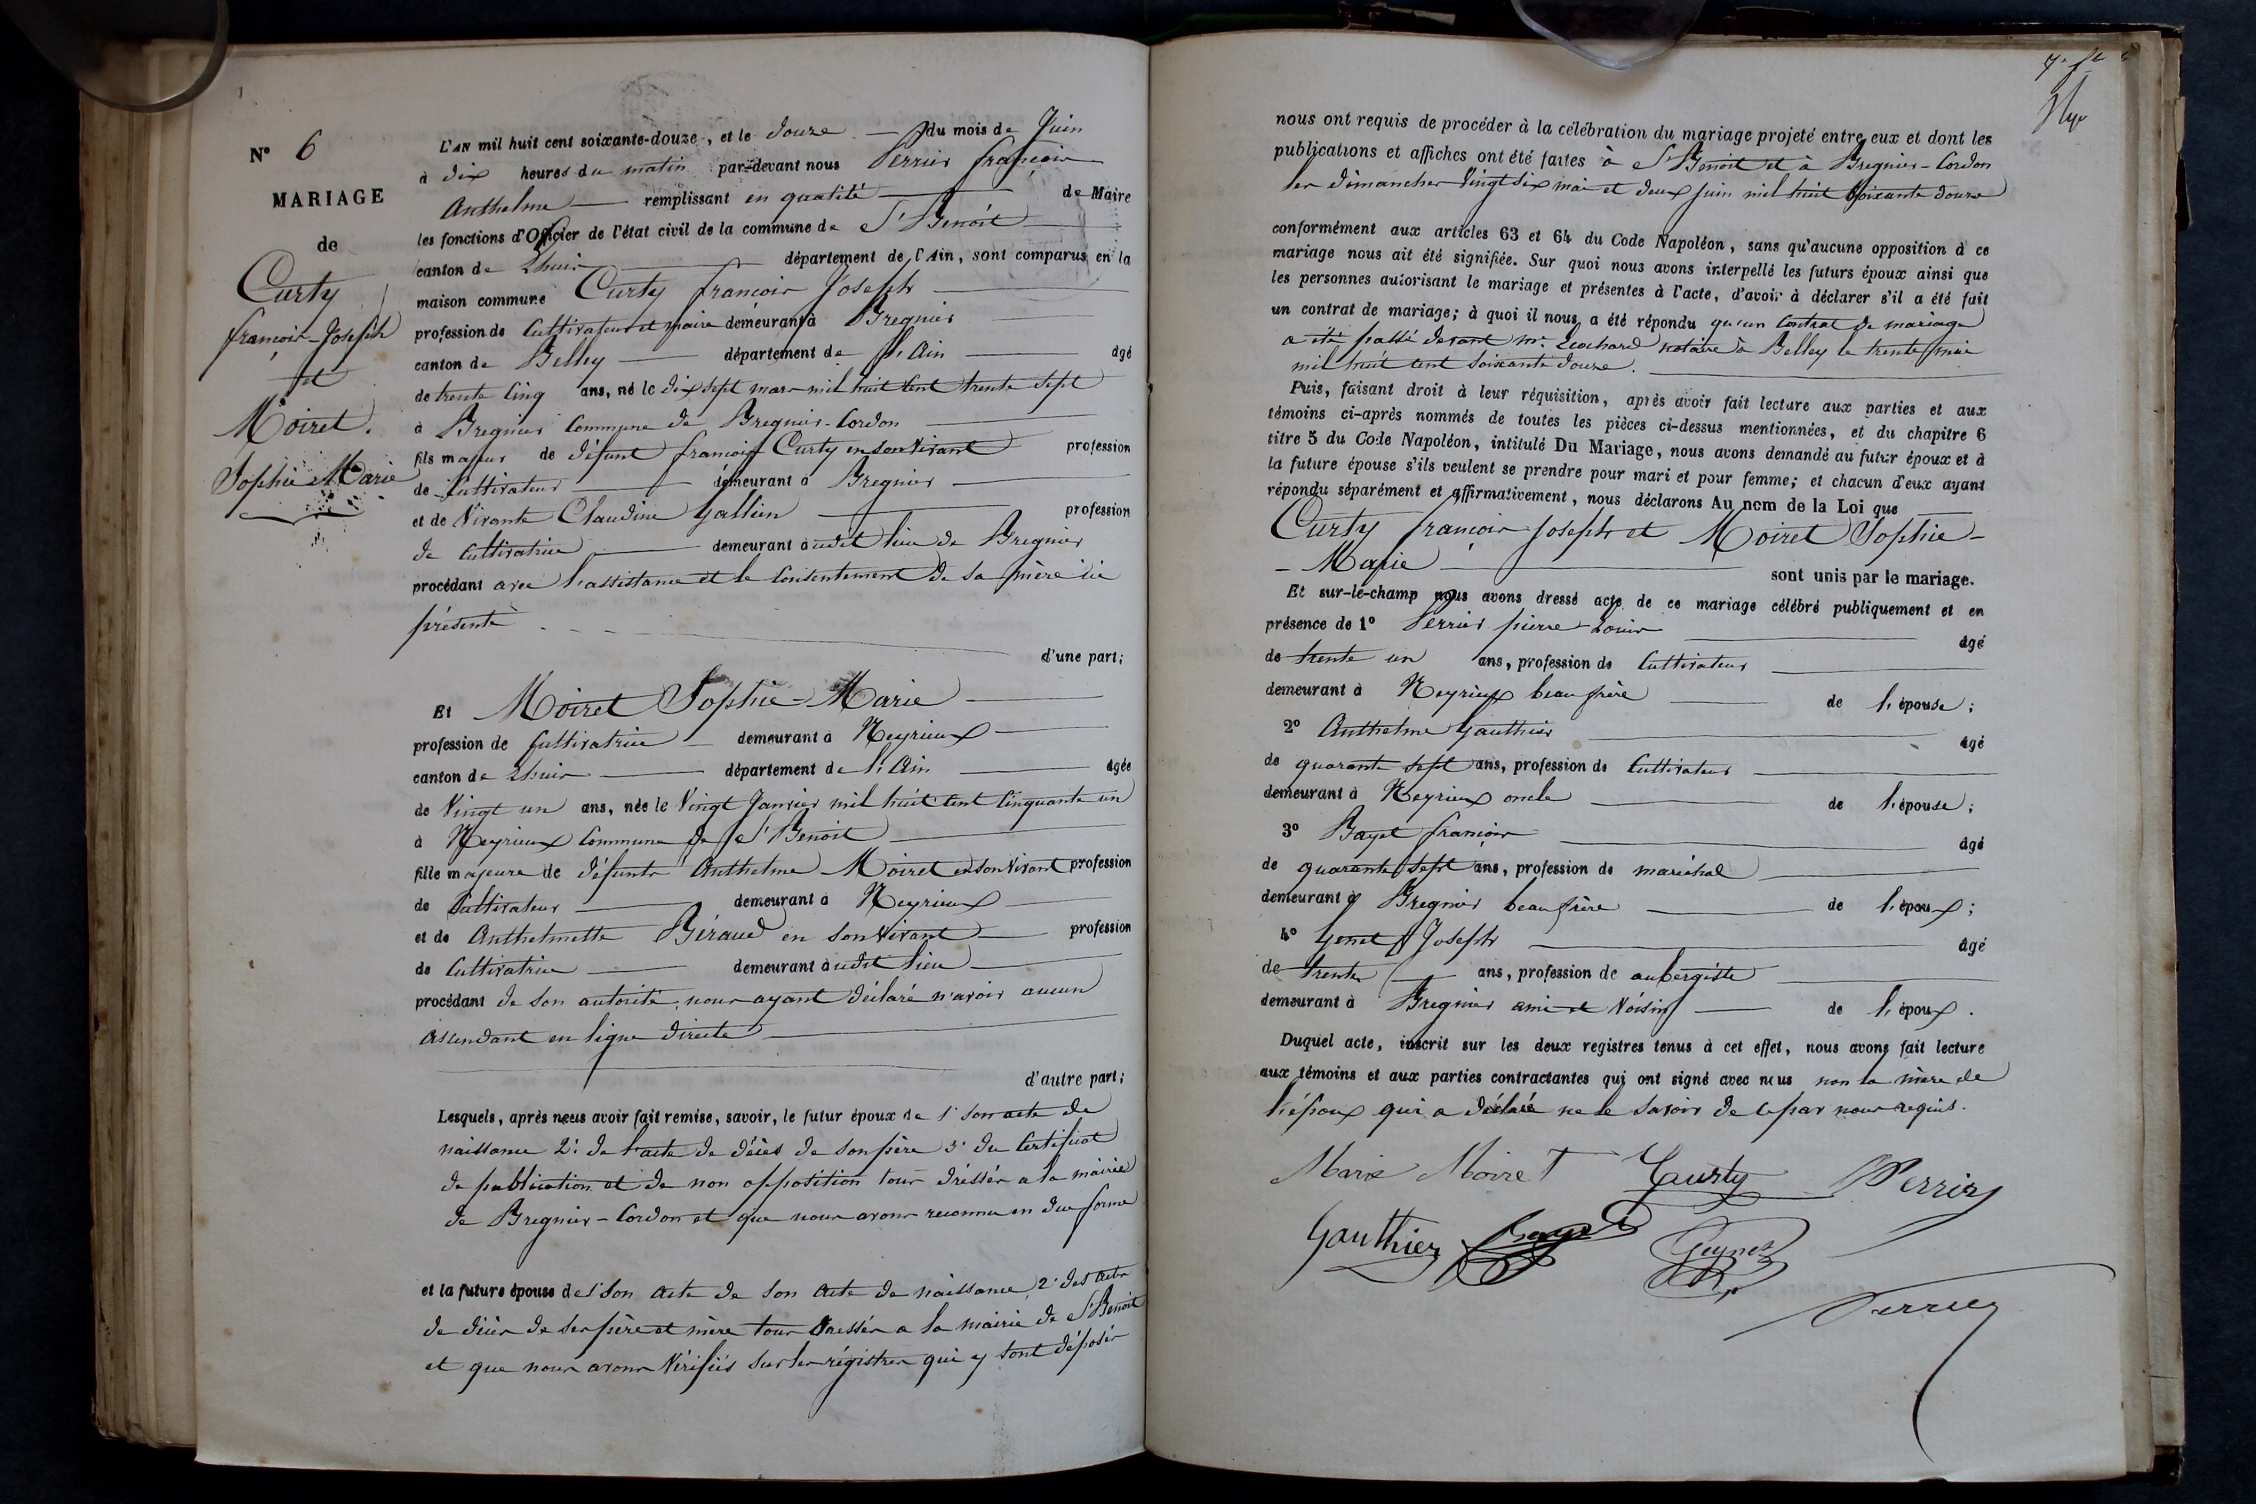 N° 6
MARIAGE
de
Curty
françois-Joseph
et
Moiret
Sophie Marie
L'AN mil huit cent soixante-douze, et le douze du mois de Juin
à dix heures du matin par-devant nous Perrier françois
Anthelme remplissant en qualité de Maire
les fonctions d'Officier de l'état civil de la commune de St Benoit
canton de Lhuis département de l'Ain, sont comparus en la
maison commune Curty françois Joseph
profession de Cultivateur et maire demeurant à Bregnier
canton de Belley département de l'Ain âgé
de trente cinq ans, né le dix sept mars mil huit cent trente sept
à Bregnier Commune de Bregnier-Cordon
fils majeur de défunt françois Curty en son vivant profession
de Cultivateur demeurant à Bregnier
et de Vivante Claudine Gallien profession
de Cultivatrice demeurant à udit lieu de Bregnier
procédant avec l'assistance et le Consentement de sa mère ici
présente
d'une part;
Et Moiret Sophie-Marie
profession de Cultivatrice demeurant à Neyrieux
canton de Lhuis département de l'Ain âgée
de Vingt un ans, née le Vingt Janvier mil huit cent Cinquante un
à Neyrieux Commune de St Benoit
fille majeure de défunts Anthelme Moiret en son vivant profession
de Cultivateur demeurant à Neyrieux
et de Anthelmette Béraud en son vivant profession
de Cultivatrice demeurant à udit lieu
procédant de son autorité, nous ayant déclaré n'avoir aucun
ascendant en ligne directe
d'autre part;
Lesquels, après nous avoir fait remise, savoir, le futur époux de 1° son acte de
naissance 2° de l'acte de décès de son père 3° du Certificat
de publication et de non opposition tous dressés a la mairie
de Bregnier-Cordon et que nous avons reconnu en due forme
et la future épouse de 1° son acte de son acte de naissance, 2° des actes
de décès de ses père et mère tous dressés a la mairie de St Benoit
et que nous avons Vérifiés sur les régistres qui y sont déposés
nous ont requis de procéder à la célébration du mariage projeté entre eux et dont les
publications et affiches ont été faites à St Benoit et à Bregnier-Cordon
les dimanches Vingt six mai et deux Juin mil huit soixante douze
conformément aux articles 63 et 64 du Code Napoléon, sans qu'aucune opposition à ce
mariage nous ait été signifiée. Sur quoi nous avons interpellé les futurs époux ainsi que
les personnes autorisant le mariage et présentes à l'acte, d'avoir à déclarer s'il a été fait
un contrat de mariage; à quoi il nous a été répondu qu'un Contrat de mariage
a été passé devant Mr notaire à Belley le trente mai
mil huit cent soixante douze.
Puis, faisant droit à leur réquisition, après avoir fait lecture aux parties et aux
témoins ci-après nommés de toutes les pièces ci-dessus mentionnées, et du chapitre 6
titre 5 du Code Napoléon, intitulé Du Mariage, nous avons demandé au futur époux et à
la future épouse s'ils veulent se prendre pour mari et pour femme; et chacun d'eux ayant
répondu séparément et affirmativement, nous déclarons Au nom de la Loi que
Curty françois Joseph et Moiret Sophie-
-Marie sont unis par le mariage.
Et sur-le-champ nous avons dressé acte de ce mariage célébré publiquement et en
présence de 1° Perrier pierre Louis âgé
de trente un ans, profession de Cultivateur
demeurant à Neyrieux beau frère de l'épouse;
2° Anthelme Gauthier âgé
de quarante sept ans, profession de Cultivateur
demeurant à Neyrieux oncle de l'épouse;
3° Bayet françois âgé
de quarante sept ans, profession de maréchal
demeurant à Bregnier beau frère de l'époux;
4° Genet Joseph âgé
de trente ans, profession de aubergiste
demeurant à Bregnier ami et Voisin de l'époux.
Duquel acte, inscrit sur les deux registres tenus à cet effet, nous avons fait lecture
aux témoins et aux parties contractantes qui ont signé avec nous non la mère de
l'époux qui a déclaré ne le savoir de ce par nous requis.
Marie Moiret Curty Perrier
Gauthier Bayet Geynet
Perrier